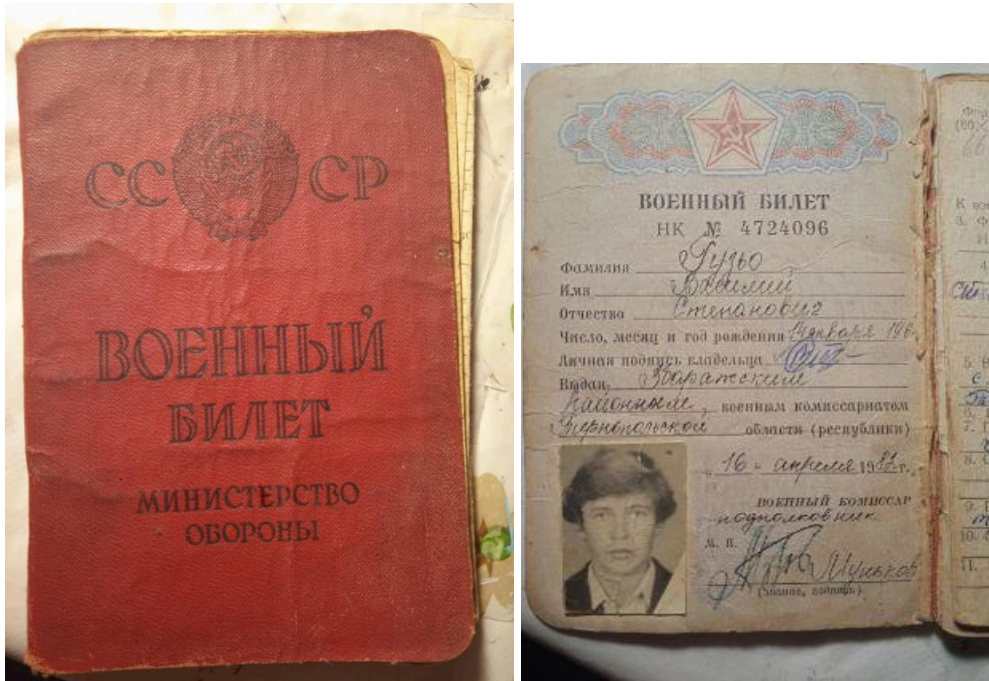 СССР
ВОЕННЫЙ
БИЛЕТ
МИНИСТЕРСТВО
ОБОРОНЫ
ВОЕННЫЙ БИЛЕТ
НК № 4724096
Фамилия Гузьо
Имя Василий
Отчество Степанович
Число, месяц и год рождения 14 января 196
Личная подпись владельца
Выдан, Збаражским
районным, военным комиссариатом
Тернопольской области (республики)
„16“ апреля 1982 г.
ВОЕННЫЙ КОМИССАР
подполковник
М. П.
Муньков
(звание, подпись)